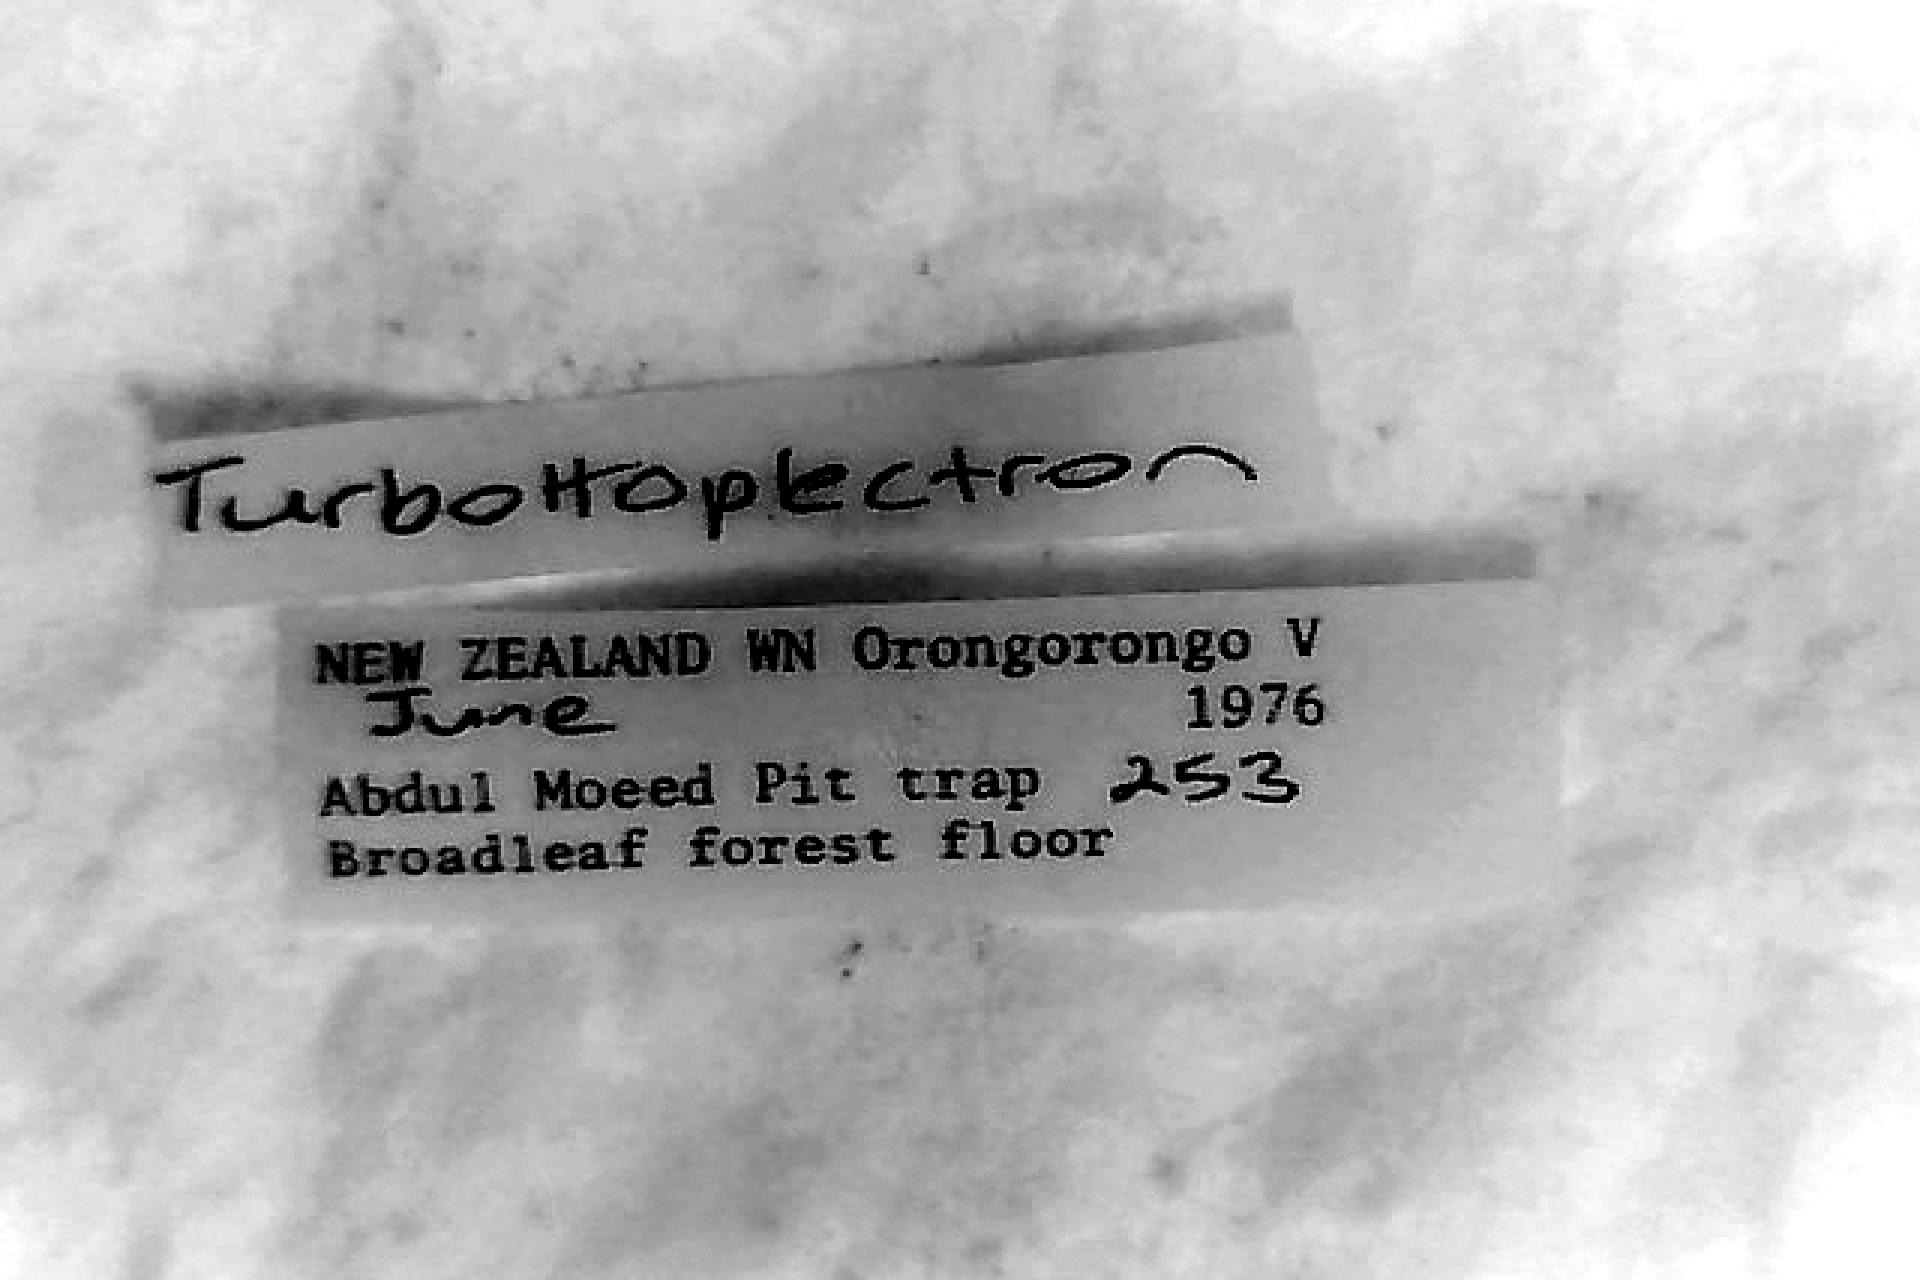 TurboHoplectron
NEW ZEALAND WN Orongorongo V
June 1976
Abdul Moeed Pit trap 253
Broadleaf forest floor